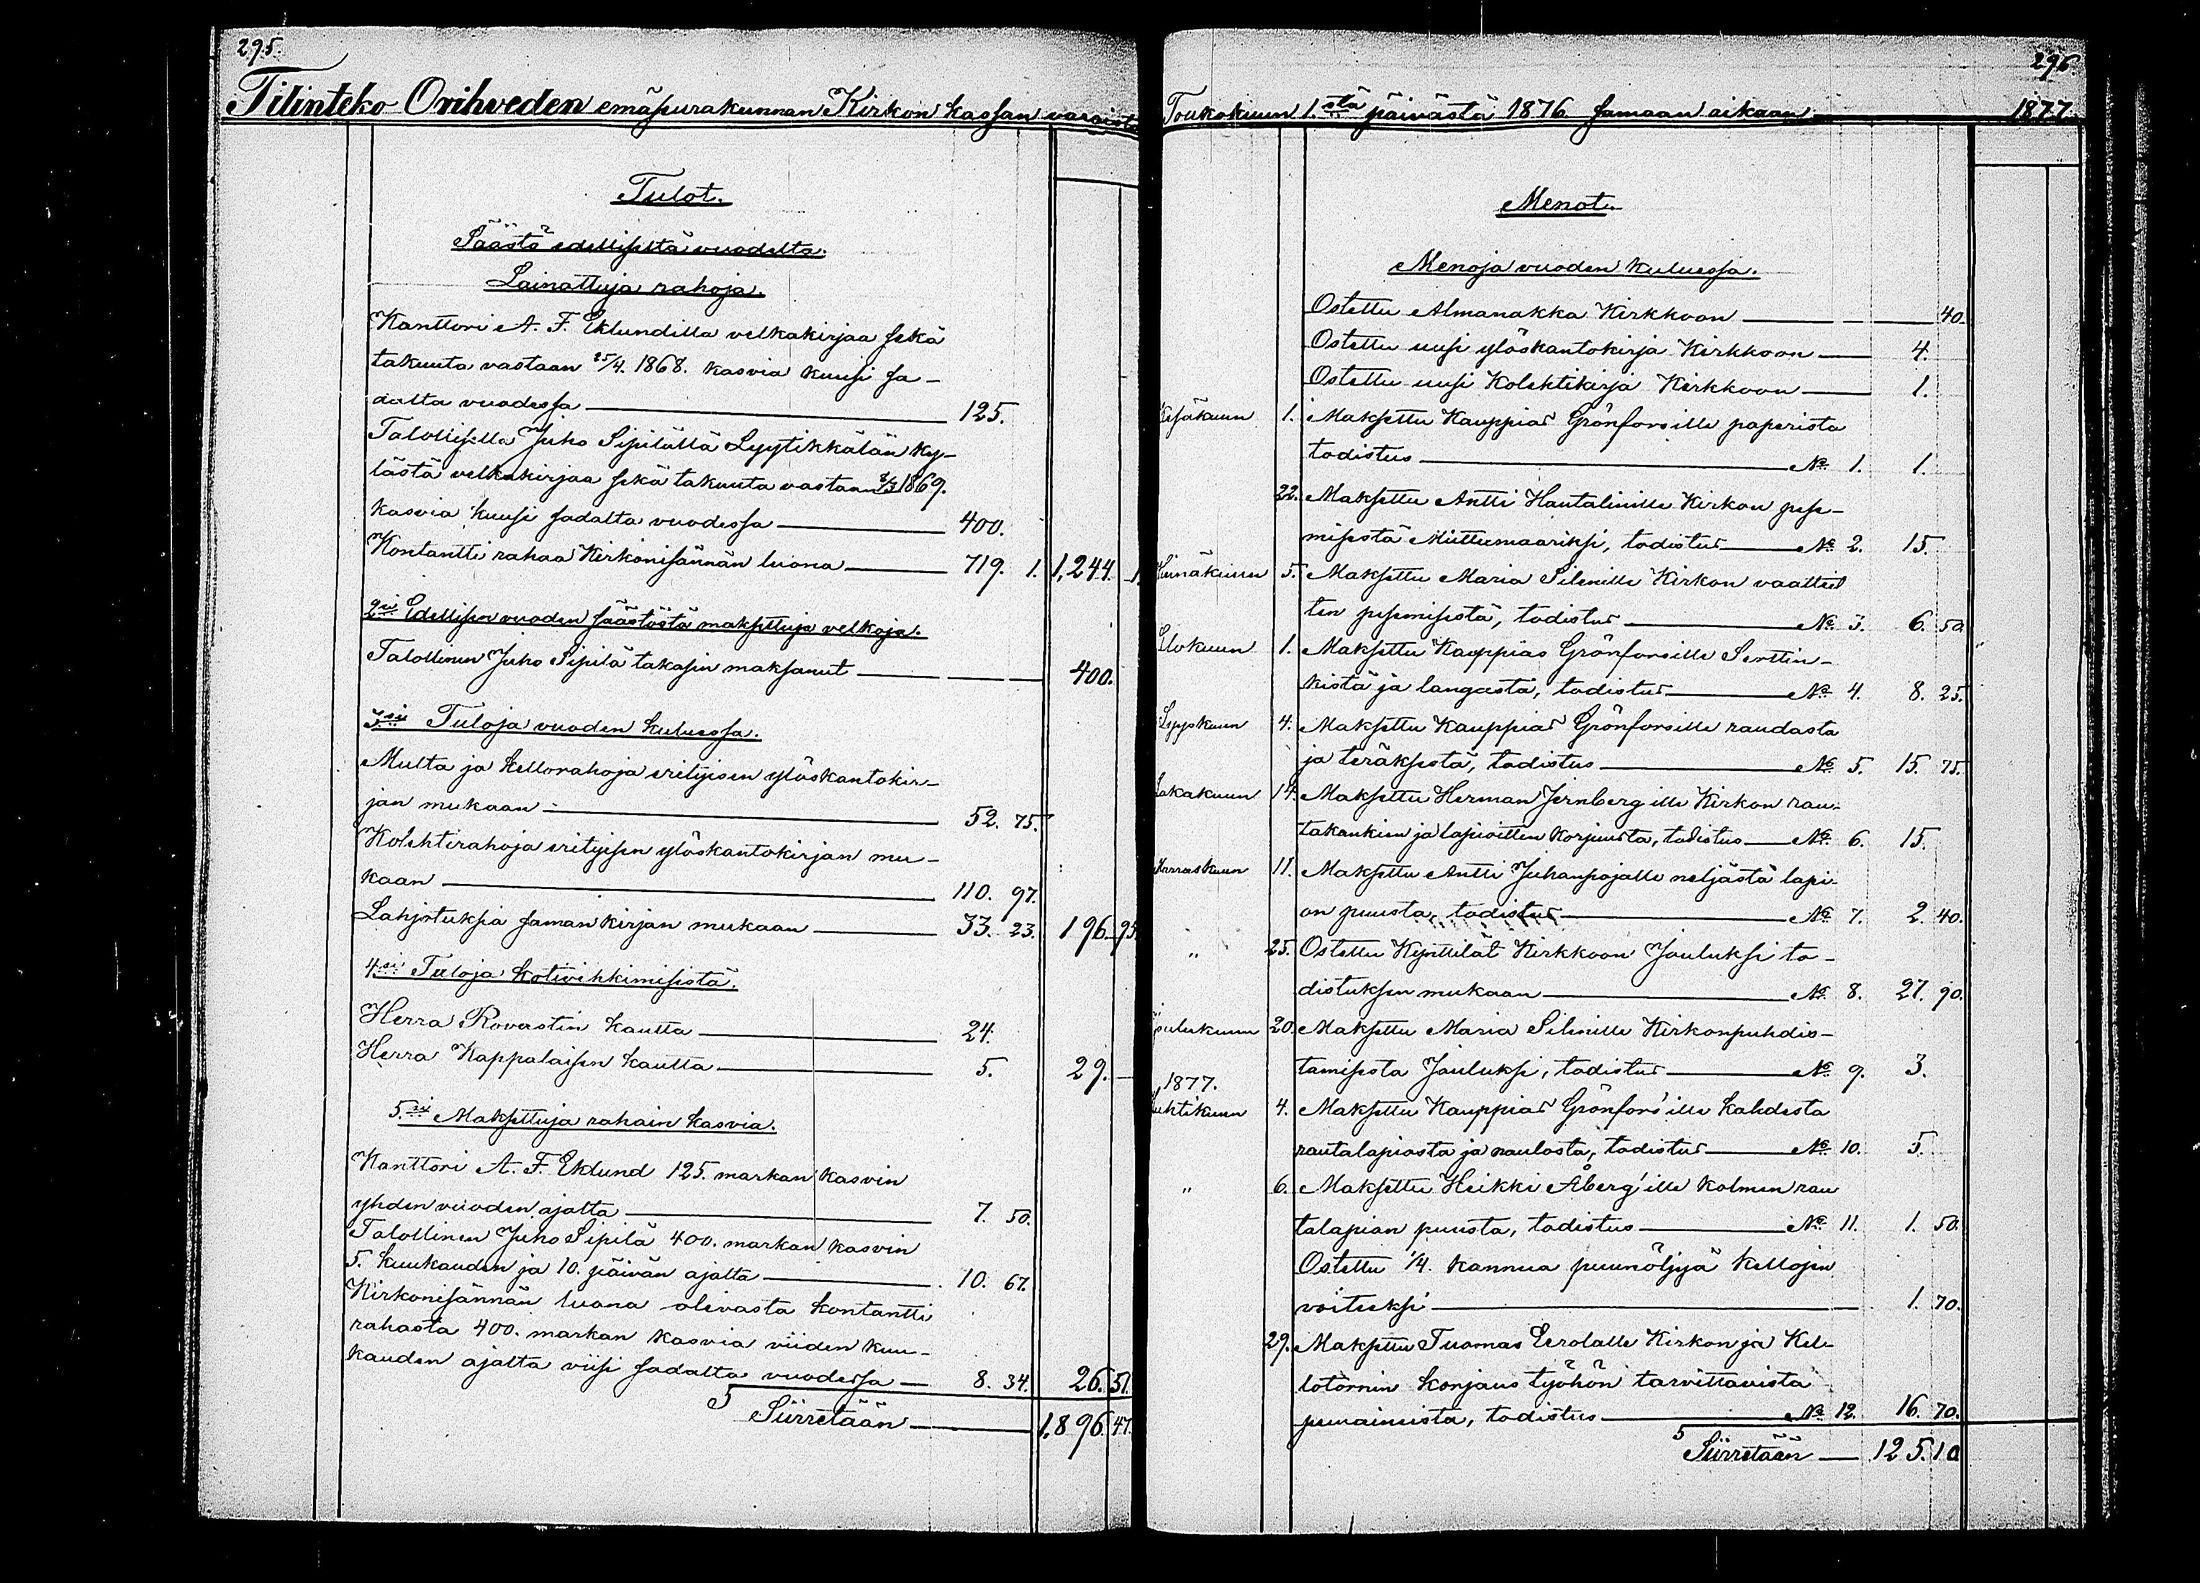 295.
Tilinteko Orihveden emäseurakunnan Kirkon kassan varoista
Tulot.
Säästö edelliseltä vuodelta.
Lainattuja rahoja.
Kanttori A. F. Eklundilla velkakirjaa sekä
takuuta vastaan 25/4. 1868. kasvia kuusi sa-
dalta vuodessa 125.
Talollisella Juho Sipilällä Lyytikkälän ky-
lästä velkakirjaa sekä takuuta vastaan 1869.
kasvia kuusi sadalta vuodessa 400.
Kontantti rahaa Kirkonisännän luona 719. 1. 1,244. 1.
2si Edellisen vuoden säästöstä maksettuja velkoja.
Talollinen Juho Sipilä takasin maksanut 400.
3si Tuloja vuoden kuluessa.
Multa ja kellorahoja erityisen ylöskantokir-
jan mukaan 52. 75.
Kolehtirahoja erityisen ylöskantokirjan mu-
kaan 110. 97.
Lahjotuksia saman kirjan mukaan 33. 23. 196. 95.
4si Tuloja kotivihkimisistä.
Herra Roverstin kautta 24.
Herra Kappalaisen kautta 5. 29. —
5si Maksettuja rahain kasvia.
Kanttori A. F. Eklund 125. markan kasvin
yhden vuoden ajalta 7. 50.
Talollinen Juho Sipilä 400. markan kasvin
5. kuukauden ja 10. päivän ajalta 10. 67.
Kirkonisännän luona olevasta kontantti
rahasta 400. markan kasvia viiden kuu-
kauden ajalta viisi sadalta vuodessa 8. 34. 26. 51.
Siirretään 1.896. 47.
296.
Toukokuun 1.stä päivästä 1876 samaan aikaan 1877.
Menot.
Menoja vuoden kuluessa.
Ostettu Almanakka Kirkkoon 40.
Ostettu uusi ylöskantokirja Kirkkoon 4.
Ostettu uusi Kolehtikirja Kirkkoon 1.
Kesäkuun 1. Maksettu Kauppias Grönforsille paperista
todistus No 1. 1.
22. Maksettu Antti Hautalinille Kirkon pese-
misestä Mittumaariksi, todistus No 2. 15.
Heinäkuun 5. Maksettu Maria Silenille Kirkon vaattei
ten pesemisestä, todistus No 3. 6. 50.
Elokuun 1. Maksettu Kauppias Grönforsille Serttin-
kistä ja langasta, todistus No 4. 8. 25.
Syyskuun 4. Maksettu Kauppias Grönforsille raudasta
ja teräksestä, todistus No 5. 15. 75.
Lokakuun 14. Maksettu Herman Jernberg'ille Kirkon rau-
takankien ja lapioitten korjuusta, todistus No 6. 15.
Marraskuun 11. Maksettu Antti Juhanpojalle neljästä lapi-
on puusta, todistus No 7. 2. 40.
" 25. Ostettu Kynttilät Kirkkoon Jouluksi to-
distuksen mukaan No 8. 27. 90.
Joulukuun 20. Maksettu Maria Silenille Kirkonpuhdis-
tamisesta Jouluksi, todistus No 9. 3.
1877.
Huhtikuun 4. Maksettu Kauppias Grönfors'ille kahdesta
rautalapiosta ja nauloista, todistus No 10. 5.
" 6. Maksettu Heikki Åberg'ille kolmen rau
talapian puusta, todistus No 11. 1. 50.
Ostettu 1/4. kannua puunöljyä kellojen
voiteeksi 1. 70.
29. Maksettu Tuomas Eerolalle Kirkon ja Kel-
lotornin korjaus työhön tarvittavista
puuaineista, todistus No 12. 16. 70.
Siirretään 125. 10